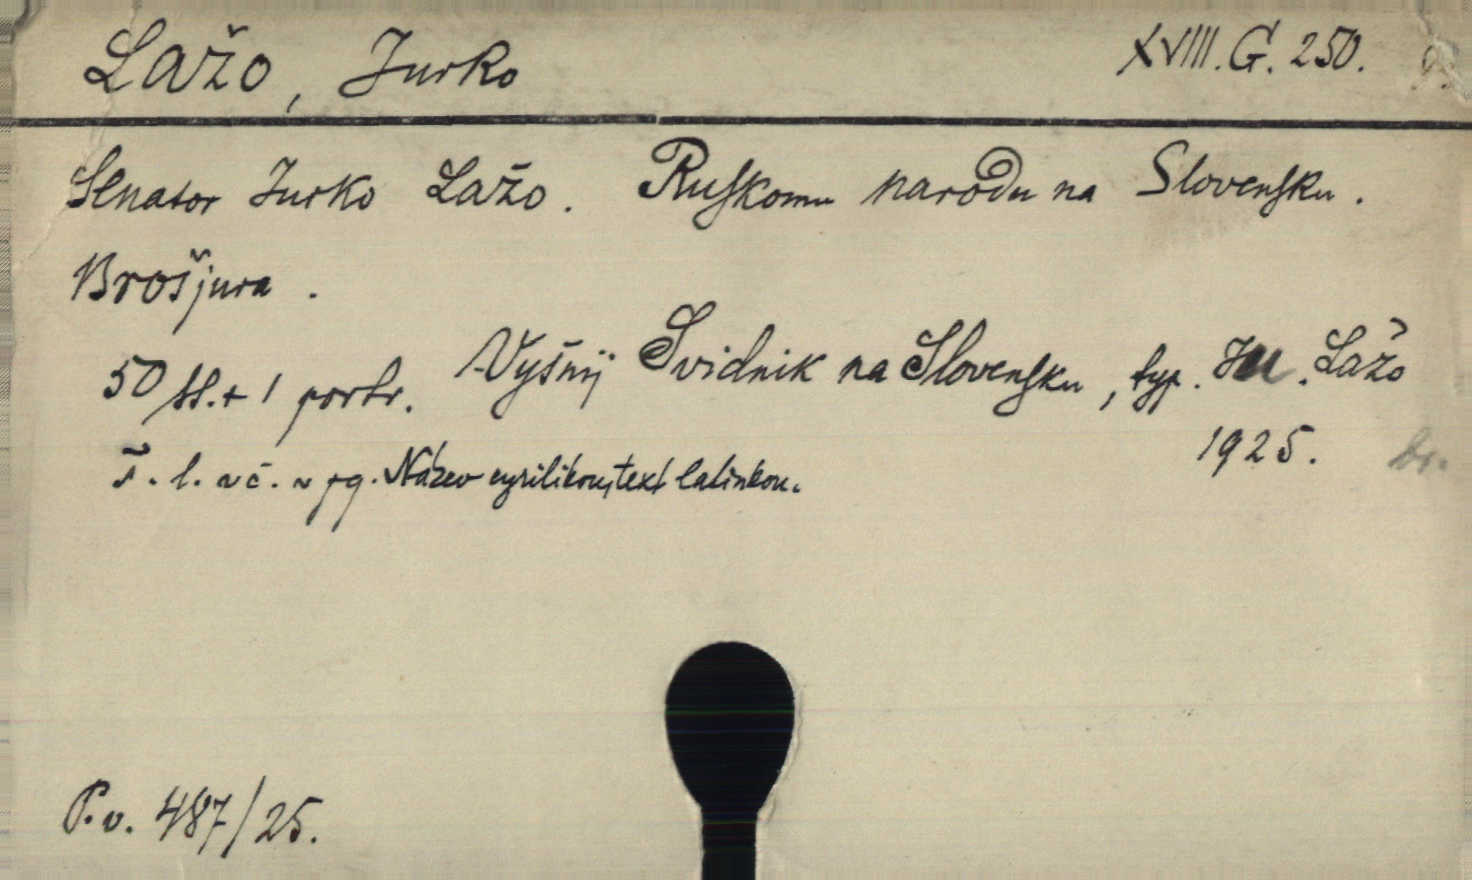 Lažo, Jurko XVIII.G.250.
Senator Jurko Lažo. Ruskomu narodu na Slovensku.
Brošjura.
50 ss.+1 portr. Vyšnij Svidnik na Slovensku, typ. Ju. Lažo
1925. br.
Název cyrilikou, text latinkou.
P.v. 487/25.